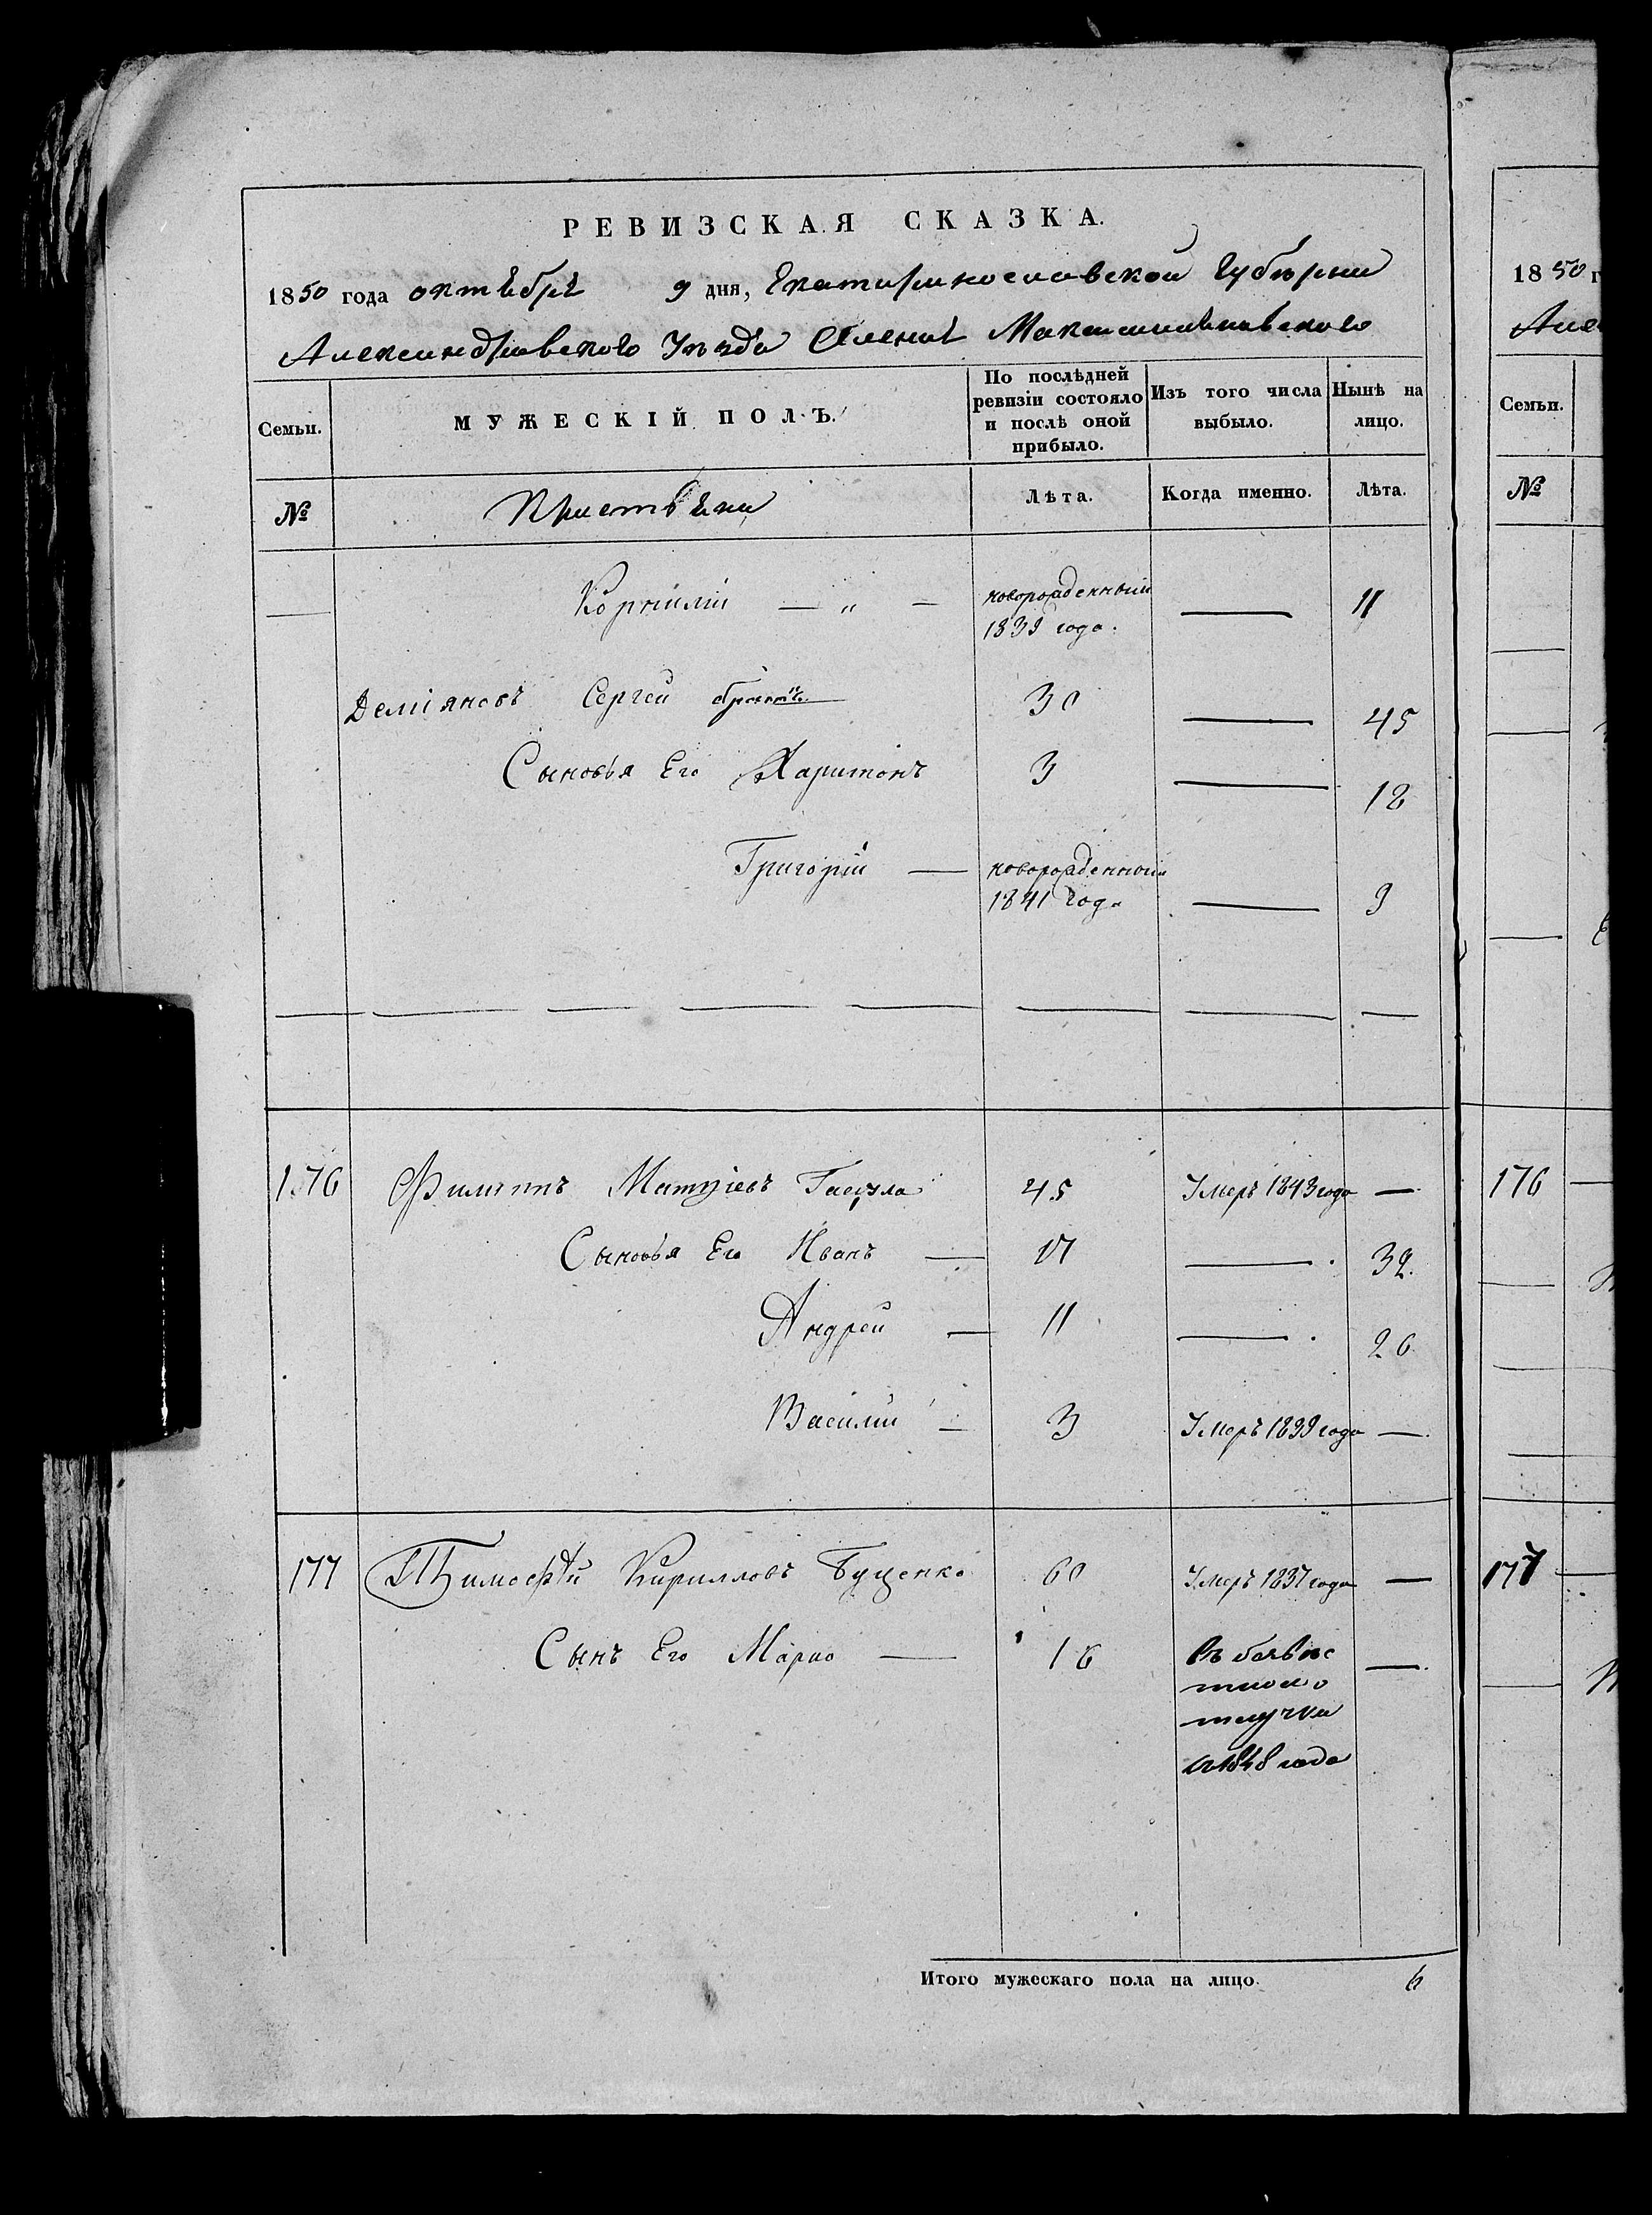 РЕВИЗСКАЯ СКАЗКА.
1850 года октября 9 дня, Екатеринославской Губернии
Александровского Уезда Селения
Семьи.
МУЖЕСКІЙ ПОЛЪ.
По послѣдней ревизіи состояло и послѣ оной прибыло.
Изъ того числа выбыло.
Нынѣ на лицо.
№
Лѣта.
Когда именно.
Лѣта.
— Корнилій — „ — новорожденный — 11
1839 года.
Деміяновъ Сергей — 30 — 45
Сыновья Его Харитонъ 3 — 18
Григорій — новорожденный
1841 года — 9
176 Филиппъ 45 Умеръ 1843 года —
Сыновья Его Иванъ — 17 — 32.
Андрей — 11 — 26
Василій — 3 Умеръ 1839 года —
177 Тимофѣй Кирилловъ Буценко 60 Умеръ 1837 года —
Сынъ Его Марко — 16 Въ безвѣс
тной о
тлучки
1848 года —
Итого мужескаго пола на лицо. 6
1850 г
Але
Семьи.
№
176
177